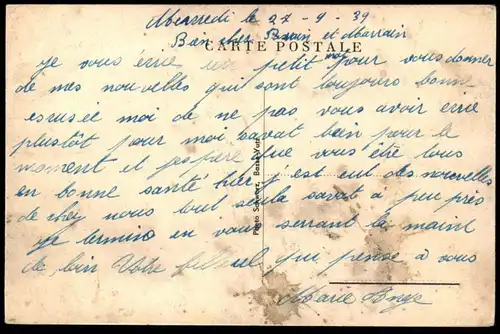 Mercredi le 27-9-39
Bien cher Parrain et Marrain
CARTE POSTALE
Je vous écrie un petit mot pour vous donner
de mes nouvelles qui sont toujours bonne
escusé moi de ne pas vous avoir écrie
plustôt pour moi savat bien pour le
moment et j'espère que vous être tous
en bonne santé hier j est eut des nouvelles
de chez nous tout seula savat à peu près
Je termine en vous serrant la maint
de loin Votre qui pense a vous
Marie
Photo Schwarz, Basse-Yutz